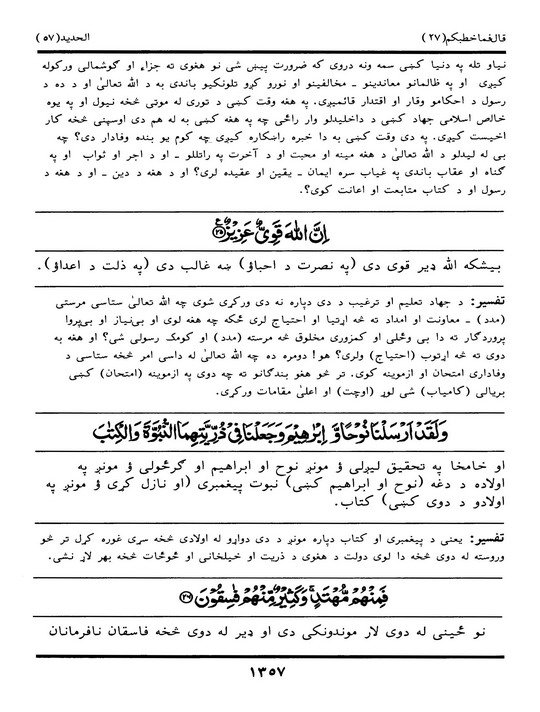 قال فما خطبکم (۲۷) الحديد (۵۷)
نیاو تله په دنیا کښی سمه ونه دروی که ضرورت پیښ شی نو هغوی ته جزاء او گوشمالی ورکوله
کیږی او په ظالمانو معاندینو ـ مخالفینو او نورو کږو تلونکیو باندی به د الله تعالیٰ او د ده د
رسول د احکامو وقار او اقتدار قائمیږی. په هغه وقت کښی د توری له موټی څخه نیول او په یوه
خالص اسلامی جهاد کښی د داخلیدلو وار راځی چه په هغه کښی به له هم دی اوسپنی څخه کار
اخیست کیږی. په دی وقت کښی به دا خبره راښکاره کیږی چه کوم یو بنده وفادار دی؟ چه
بی له لیدلو د الله تعالیٰ د هغه مینه او محبت او د آخرت په راتللو ـ او د اجر او ثواب او په
گناه او عقاب باندی په غیاب سره ایمان ـ یقین او عقیده لری؟ او د هغه د دین ـ او د هغه د
رسول او د کتاب متابعت او اعانت کوی؟.
اِنَّ اللهَ قَوِیٌّ عَزِیْزٌ ﴿۲۵﴾ ع
بیشکه الله ډیر قوی دی (په نصرت د احباؤ) ښه غالب دی (په ذلت د اعداؤ).
تفسیر: د جهاد تعلیم او ترغیب د دی دپاره نه دی ورکړی شوی چه الله تعالیٰ ستاسی مرستی
(مدد) ـ معاونت او امداد ته څه اړتیا او احتیاج لری ځکه چه هغه لوی او بی‌نیاز او بی‌پروا
پروردگار ته دا بی وځلی او کمزوری مخلوق څه مرسته (مدد) او کومک رسولی شی؟ او هغه به
دوی ته څه اړتوب (احتیاج) ولری؟ هو! دومره ده چه الله تعالیٰ له داسی امر څخه ستاسی د
وفاداری امتحان او ازموینه کوی. تر څو هغو بندگانو ته چه دوی په ازموینه (امتحان) کښی
بریالی (کامیاب) شی لوړ (اوچت) او اعلیٰ مقامات ورکړی.
وَلَقَدْ اَرْسَلْنَا نُوْحًا وَّ اِبْرٰهِیْمَ وَجَعَلْنَا فِیْ ذُرِّیَّتِهِمَا النُّبُوَّةَ وَالْكِتٰبَ
او خامخا په تحقیق لیږلی ؤ مونږ نوح او ابراهیم او گرځولی ؤ مونږ په
اولاده د دغه (نوح او ابراهیم کښی) نبوت پیغمبری (او نازل کړی ؤ مونږ په
اولادو د دوی کښی) کتاب.
تفسیر: یعنی د پیغمبری او کتاب دپاره مونږ د دی دواړو له اولادی څخه سړی غوره کړل تر څو
وروسته له دوی څخه دا لوی دولت د هغوی د ذریت او خیلخانی او ځوځات څخه بهر لاړ نشی.
فَمِنْهُمْ مُّهْتَدٍ ۚ وَكَثِیْرٌ مِّنْهُمْ فٰسِقُوْنَ ﴿۲۶﴾
نو ځینی له دوی لار موندونکی دی او ډیر له دوی څخه فاسقان نافرمانان
۱۳۵۷